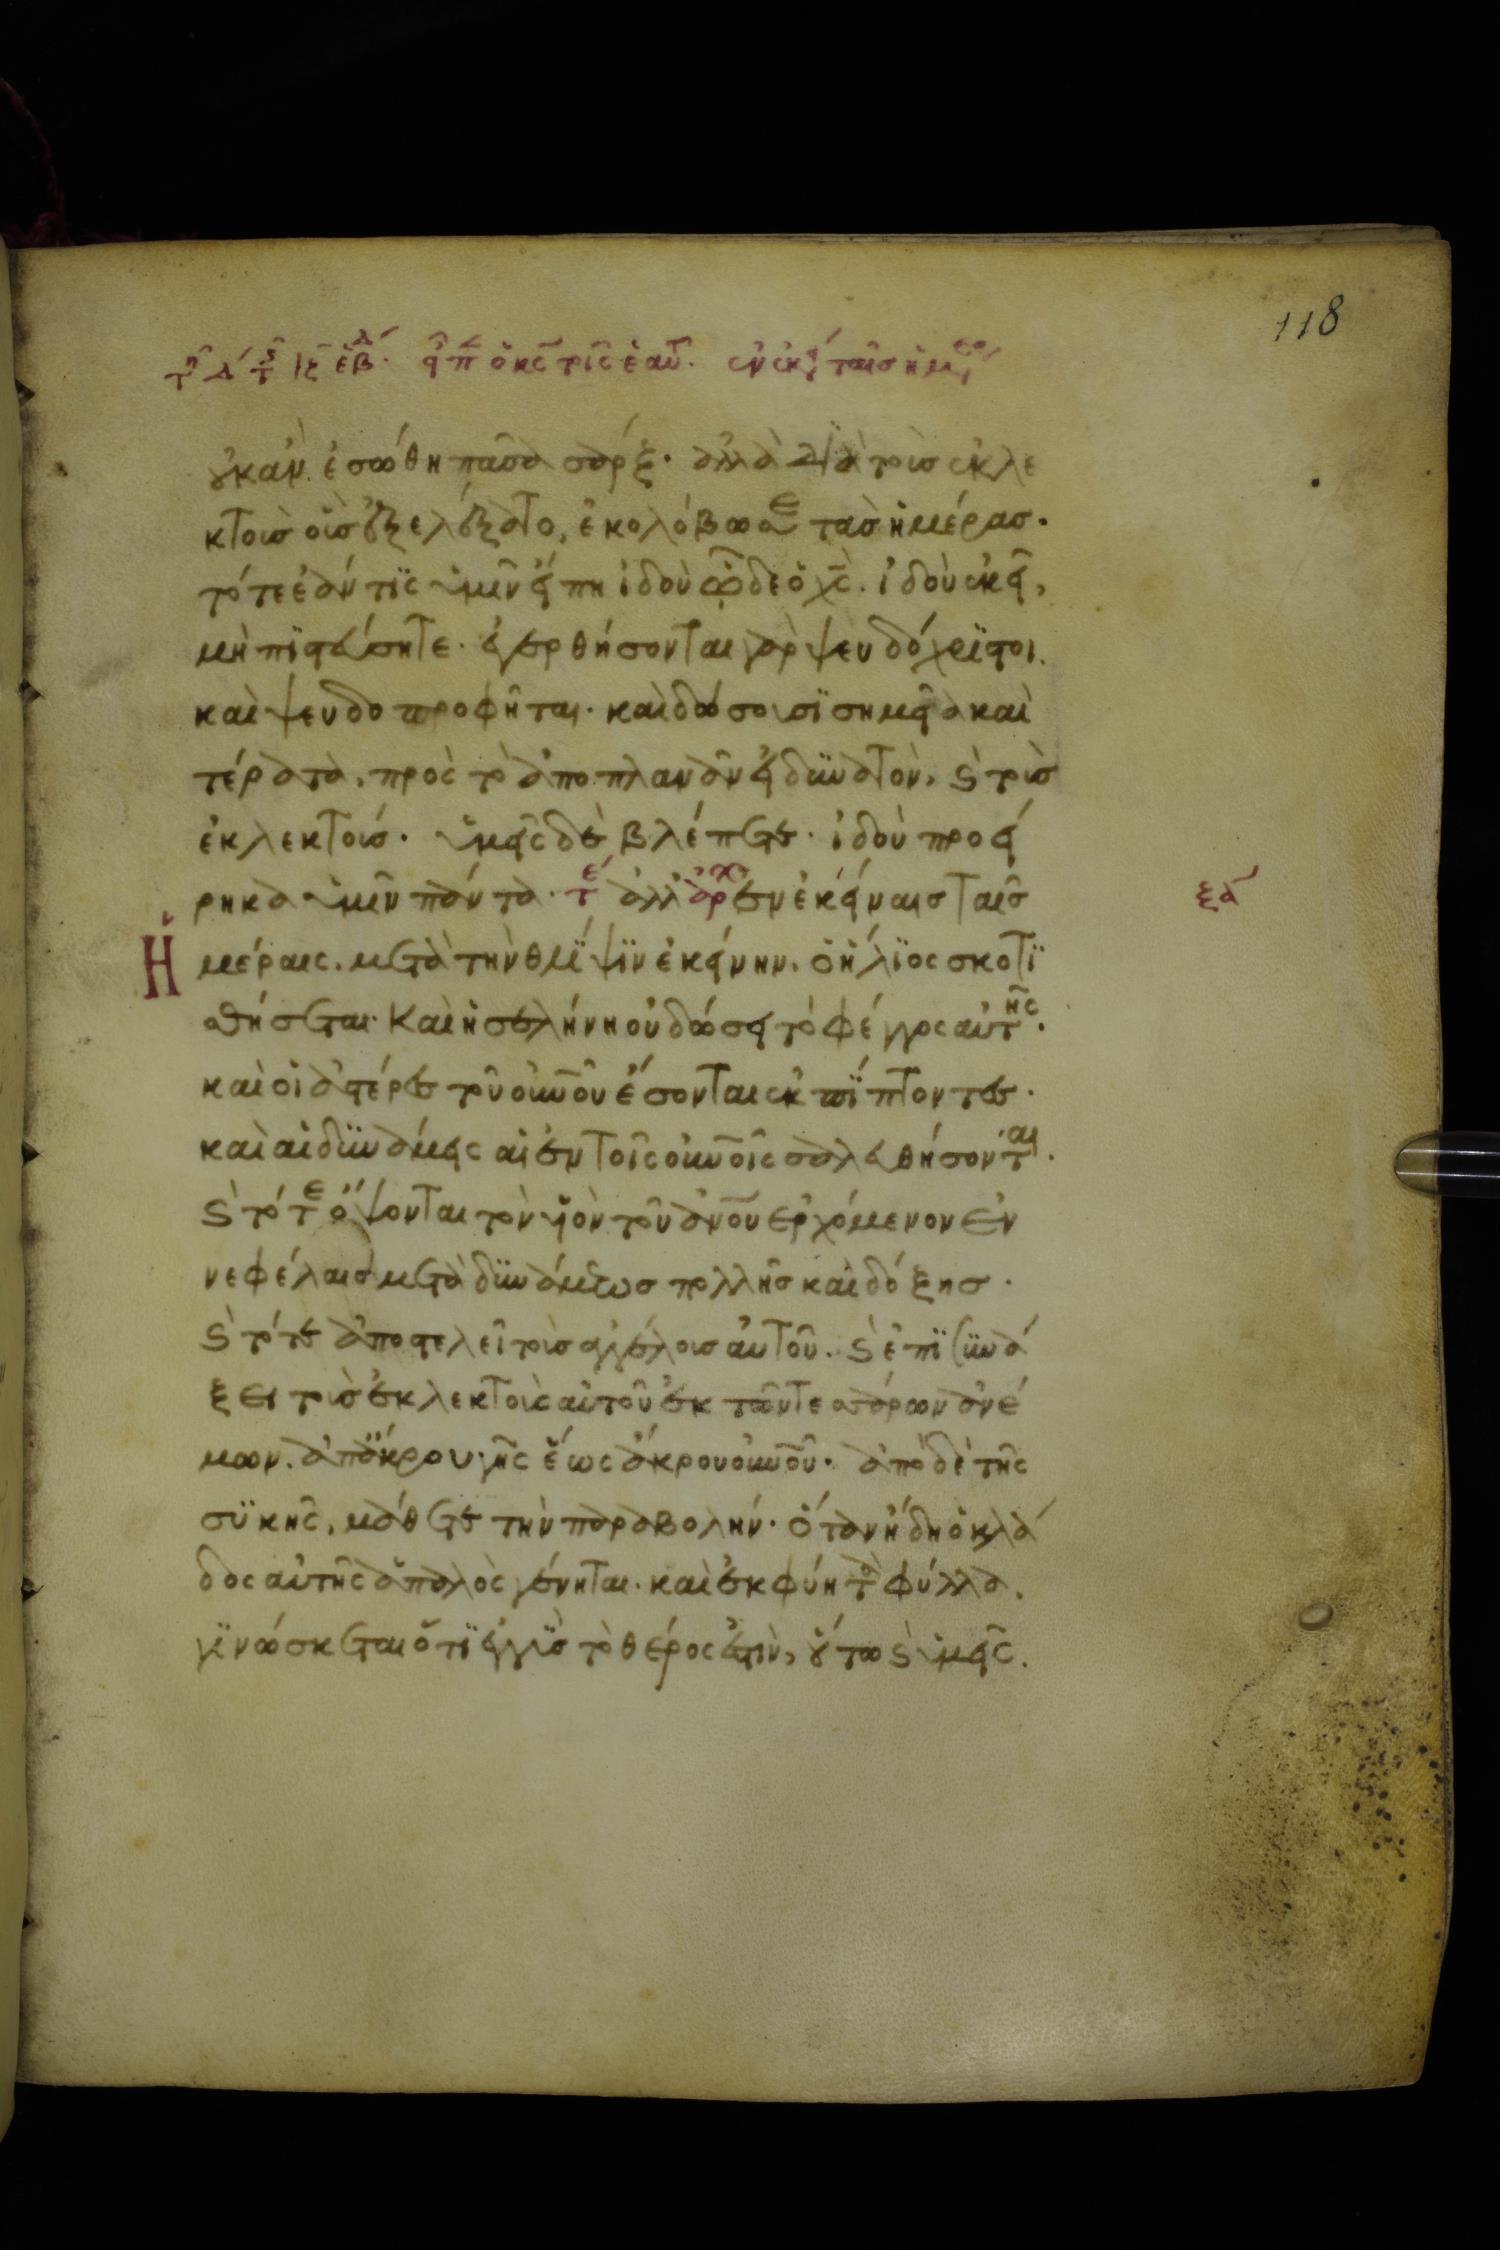 118
τῇ δ τῆς ιζ ἑβδ. εἶπ ὁ κς τοῖς ἑαυτ. ἐν ἐκεί ταῖσ ἡμέ
οὐκ ἀν ἐσώθη πᾶσα σάρξ. ἀλλὰ διὰ τοὺσ ἐκλε
κτοὺσ οὓσ ἐξελέξατο, ἐκολόβωσε τασ ἡμέρασ.
τότε ἐάν τϊς ὑμῖν εἴπη ἰδοὺ ὧδε ὁ χς. ἰδοὺ ἐκεῖ,
μὴ πϊστεύσητε. ἐγερθήσονται γὰρ ψευδόχρϊστοι.
καὶ ψευδοπροφῆται. καὶ δώσουσϊ σημεῖα καὶ
τέρατα, πρὸς τὸ ἀποπλανᾶν εἰ δϋνατὸν, καὶ τοὺσ
ἐκλεκτούσ. ὑμεῖς δὲ βλέπετε. ἰδοὺ προεί
ρηκα ὑμῖν πάντα. τε ἀλλ ἀρχ ἐν ἐκείναισ ταῖσ
ξδ
Ἡμέραις. μετὰ τὴν θλίψϊν ἐκείνην. ὁ ἥλϊος σκοτϊ
σθήσεται. Καὶ ἡ σελήνη οὐ δώσει τὸ φέγγος αὐτῆς.
καὶ οἱ ἀστέρες τοῦ οὐνοῦ ἔσονται ἐκπΐπτοντες.
καὶ αἱ δϋνάμεις αἱ ἐν τοῖς οὐνοῖς σαλευθήσονται.
καὶ τότε ὄψονται τὸν υἱὸν τοῦ ἀνου ἐρχόμενον ἐν
νεφέλαισ μετὰ δϋνάμεωσ πολλῆσ καὶ δόξησ.
καὶ τότε ἀποστελεῖ τοὺσ ἀγγέλουσ αὐτοῦ. καὶ ἐπϊσϋνά
ξει τοὺσ ἐκλεκτοὺς αὐτοῦ ἐκ τῶν τεσσάρων ἀνέ
μων. ἀπ ἄκρου γῆς ἕως ἄκρου οὐνοῦ. ἀπὸ δὲ τῆς
σϋκῆς, μάθετε τὴν παραβολήν. ὅταν ἤδη ὁ κλά
δος αὐτῆς ἁπαλὸς γένηται. καὶ ἐκφύη τὰ φύλλα.
γϊνώσκεται ὅτϊ ἐγγὺσ τὸ θέρος ἐστὶν, οὕτω καὶ ὑμεῖς.